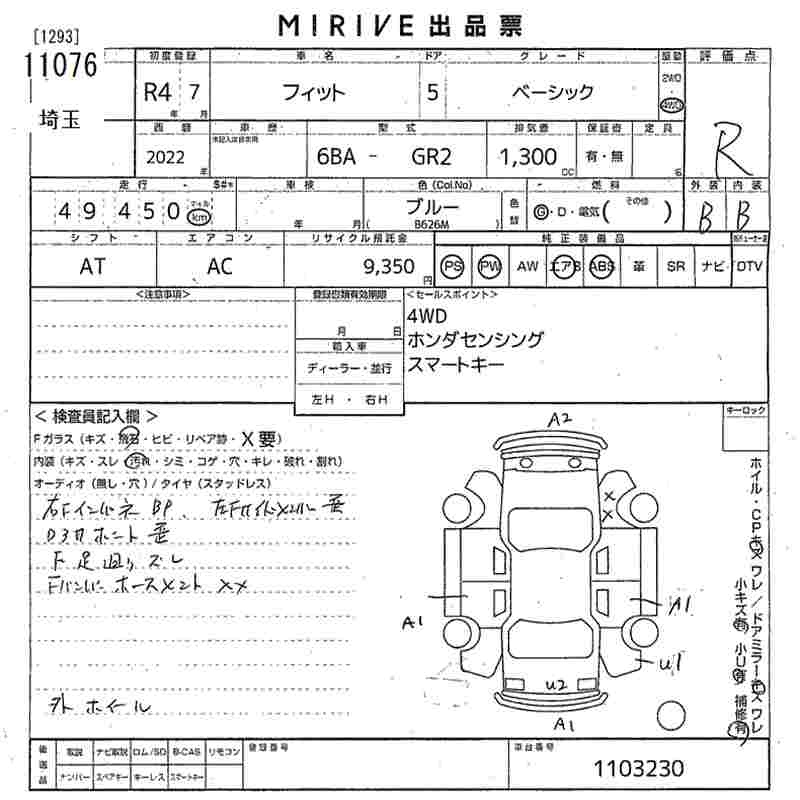 MIRIVE 出品票
[1293]
11076
埼玉
初度登録 車名 ドア グレード 駆動 評価点
R4 7 フィット 5 ベーシック 2WD 4WD
年 月
R
西暦 車歴 型式 排気量 保証書 定員
未記入は自家用
2022 年 6BA - GR2 1,300 CC 有・無 名
走行 $#* 車検 色(Col.No) 色替 燃料 外装 内装
49 450 マイル km 年 月 ブルー ( B626M ) G・D・電気( その他 ) B B
シフト エアコン リサイクル預託金 純正装備品
AT AC 9,350 円 PS PW AW エアB ABS 革 SR ナビ DTV
<注意事項> 登録書類有効期限 <セールスポイント>
月 日
輸入車
ディーラー・並行
左H ・ 右H
4WD
ホンダセンシング
スマートキー
キーロック
<検査員記入欄>
Fガラス(キズ・飛石・ヒビ・リペア跡・X要)
内装(キズ・スレ・汚れ・シミ・コゲ・穴・キレ・破れ・割れ)
オーディオ(無し・穴)/タイヤ(スタッドレス)
右Fインパネ BP、
F 足廻り ズレ
××
外 ホイール
A2
×
×
A1
A1
U1
U2
A1
小キズ有 小U有 補修有
後送品 取説 ナビ取説 ロム/SD B-CAS リモコン
ナンバー スペアキー キーレス スマートキー
登録番号
車台番号
1103230